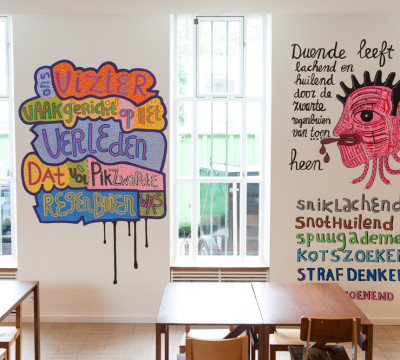 ons VIZIER
VAAK gericht op het
VERLEDEN
Dat was PIKZwarte
REGENBUIEN WAS
Duende leeft
lachend en
huilend
door de
zwarte
regenbuien
van toen
heen
sniklachend
snothuilend
spuugademe
KOTSZOEKE
STRAFDENKE
OENEND